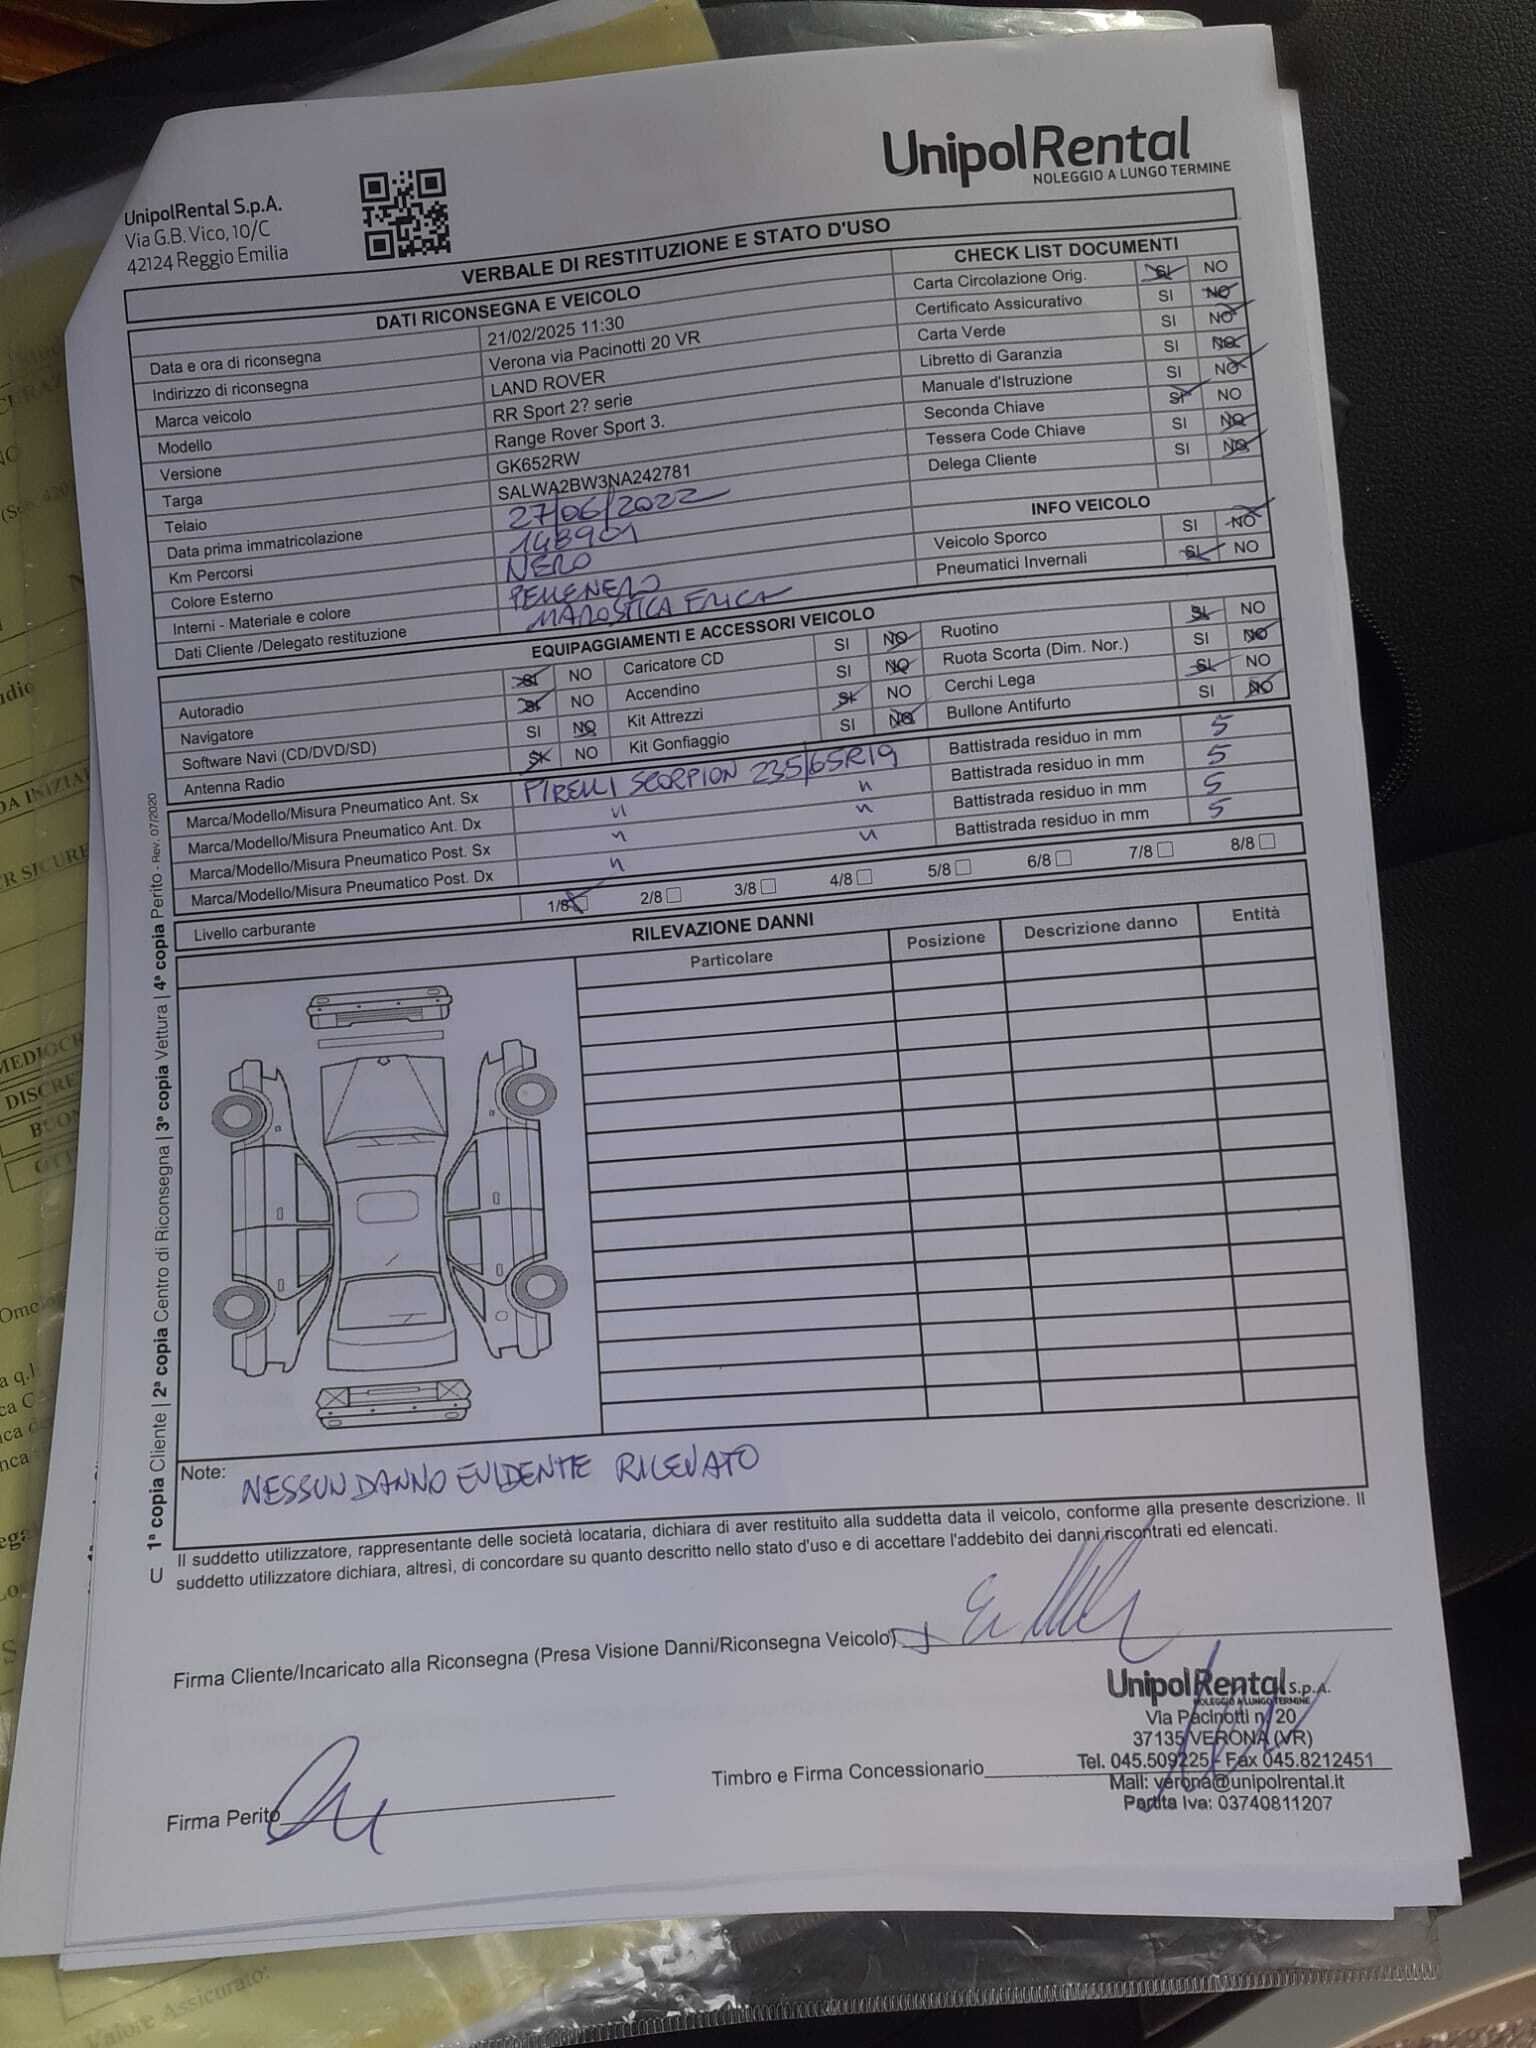 UnipolRental S.p.A.
Via G.B. Vico, 10/C
42124 Reggio Emilia
UnipolRental
NOLEGGIO A LUNGO TERMINE
VERBALE DI RESTITUZIONE E STATO D'USO
DATI RICONSEGNA E VEICOLO
Data e ora di riconsegna 21/02/2025 11:30
Indirizzo di riconsegna Verona via Pacinotti 20 VR
Marca veicolo LAND ROVER
Modello RR Sport 2? serie
Versione Range Rover Sport 3.
Targa GK652RW
Telaio SALWA2BW3NA242781
Data prima immatricolazione 27/06/2022
Km Percorsi 148901
Colore Esterno NERO
Interni - Materiale e colore PELLE NERO
Dati Cliente /Delegato restituzione MAROSTICA ERICA
CHECK LIST DOCUMENTI
Carta Circolazione Orig. SI NO
Certificato Assicurativo SI NO
Carta Verde SI NO
Libretto di Garanzia SI NO
Manuale d'Istruzione SI NO
Seconda Chiave SI NO
Tessera Code Chiave SI NO
Delega Cliente SI NO
INFO VEICOLO
Veicolo Sporco SI NO
Pneumatici Invernali SI NO
EQUIPAGGIAMENTI E ACCESSORI VEICOLO
Autoradio SI NO Caricatore CD SI NO Ruotino SI NO
Navigatore SI NO Accendino SI NO Ruota Scorta (Dim. Nor.) SI NO
Software Navi (CD/DVD/SD) SI NO Kit Attrezzi SI NO Cerchi Lega SI NO
Antenna Radio SI NO Kit Gonfiaggio SI NO Bullone Antifurto SI NO
Marca/Modello/Misura Pneumatico Ant. Sx PIRELLI SCORPION 235/65R19 Battistrada residuo in mm 5
Marca/Modello/Misura Pneumatico Ant. Dx " " Battistrada residuo in mm 5
Marca/Modello/Misura Pneumatico Post. Sx " " Battistrada residuo in mm 5
Marca/Modello/Misura Pneumatico Post. Dx " " Battistrada residuo in mm 5
Livello carburante 1/8 2/8 3/8 4/8 5/8 6/8 7/8 8/8
RILEVAZIONE DANNI
Particolare Posizione Descrizione danno Entità
Note: NESSUN DANNO EVIDENTE RILEVATO
Il suddetto utilizzatore, rappresentante delle società locataria, dichiara di aver restituito alla suddetta data il veicolo, conforme alla presente descrizione. Il
suddetto utilizzatore dichiara, altresì, di concordare su quanto descritto nello stato d'uso e di accettare l'addebito dei danni riscontrati ed elencati.
Firma Cliente/Incaricato alla Riconsegna (Presa Visione Danni/Riconsegna Veicolo)
UnipolRental S.p.A.
NOLEGGIO A LUNGO TERMINE
Via Pacinotti n. 20
37135 VERONA (VR)
Tel. 045.509225 - Fax 045.8212451
Mail: verona@unipolrental.it
Partita Iva: 03740811207
Timbro e Firma Concessionario
Firma Perito
U 1ª copia Cliente | 2ª copia Centro di Riconsegna | 3ª copia Vettura | 4ª copia Perito - Rev. 07/2020
MEDIOCR
DISCRE
BUON
OTT
Valore Assicurato: